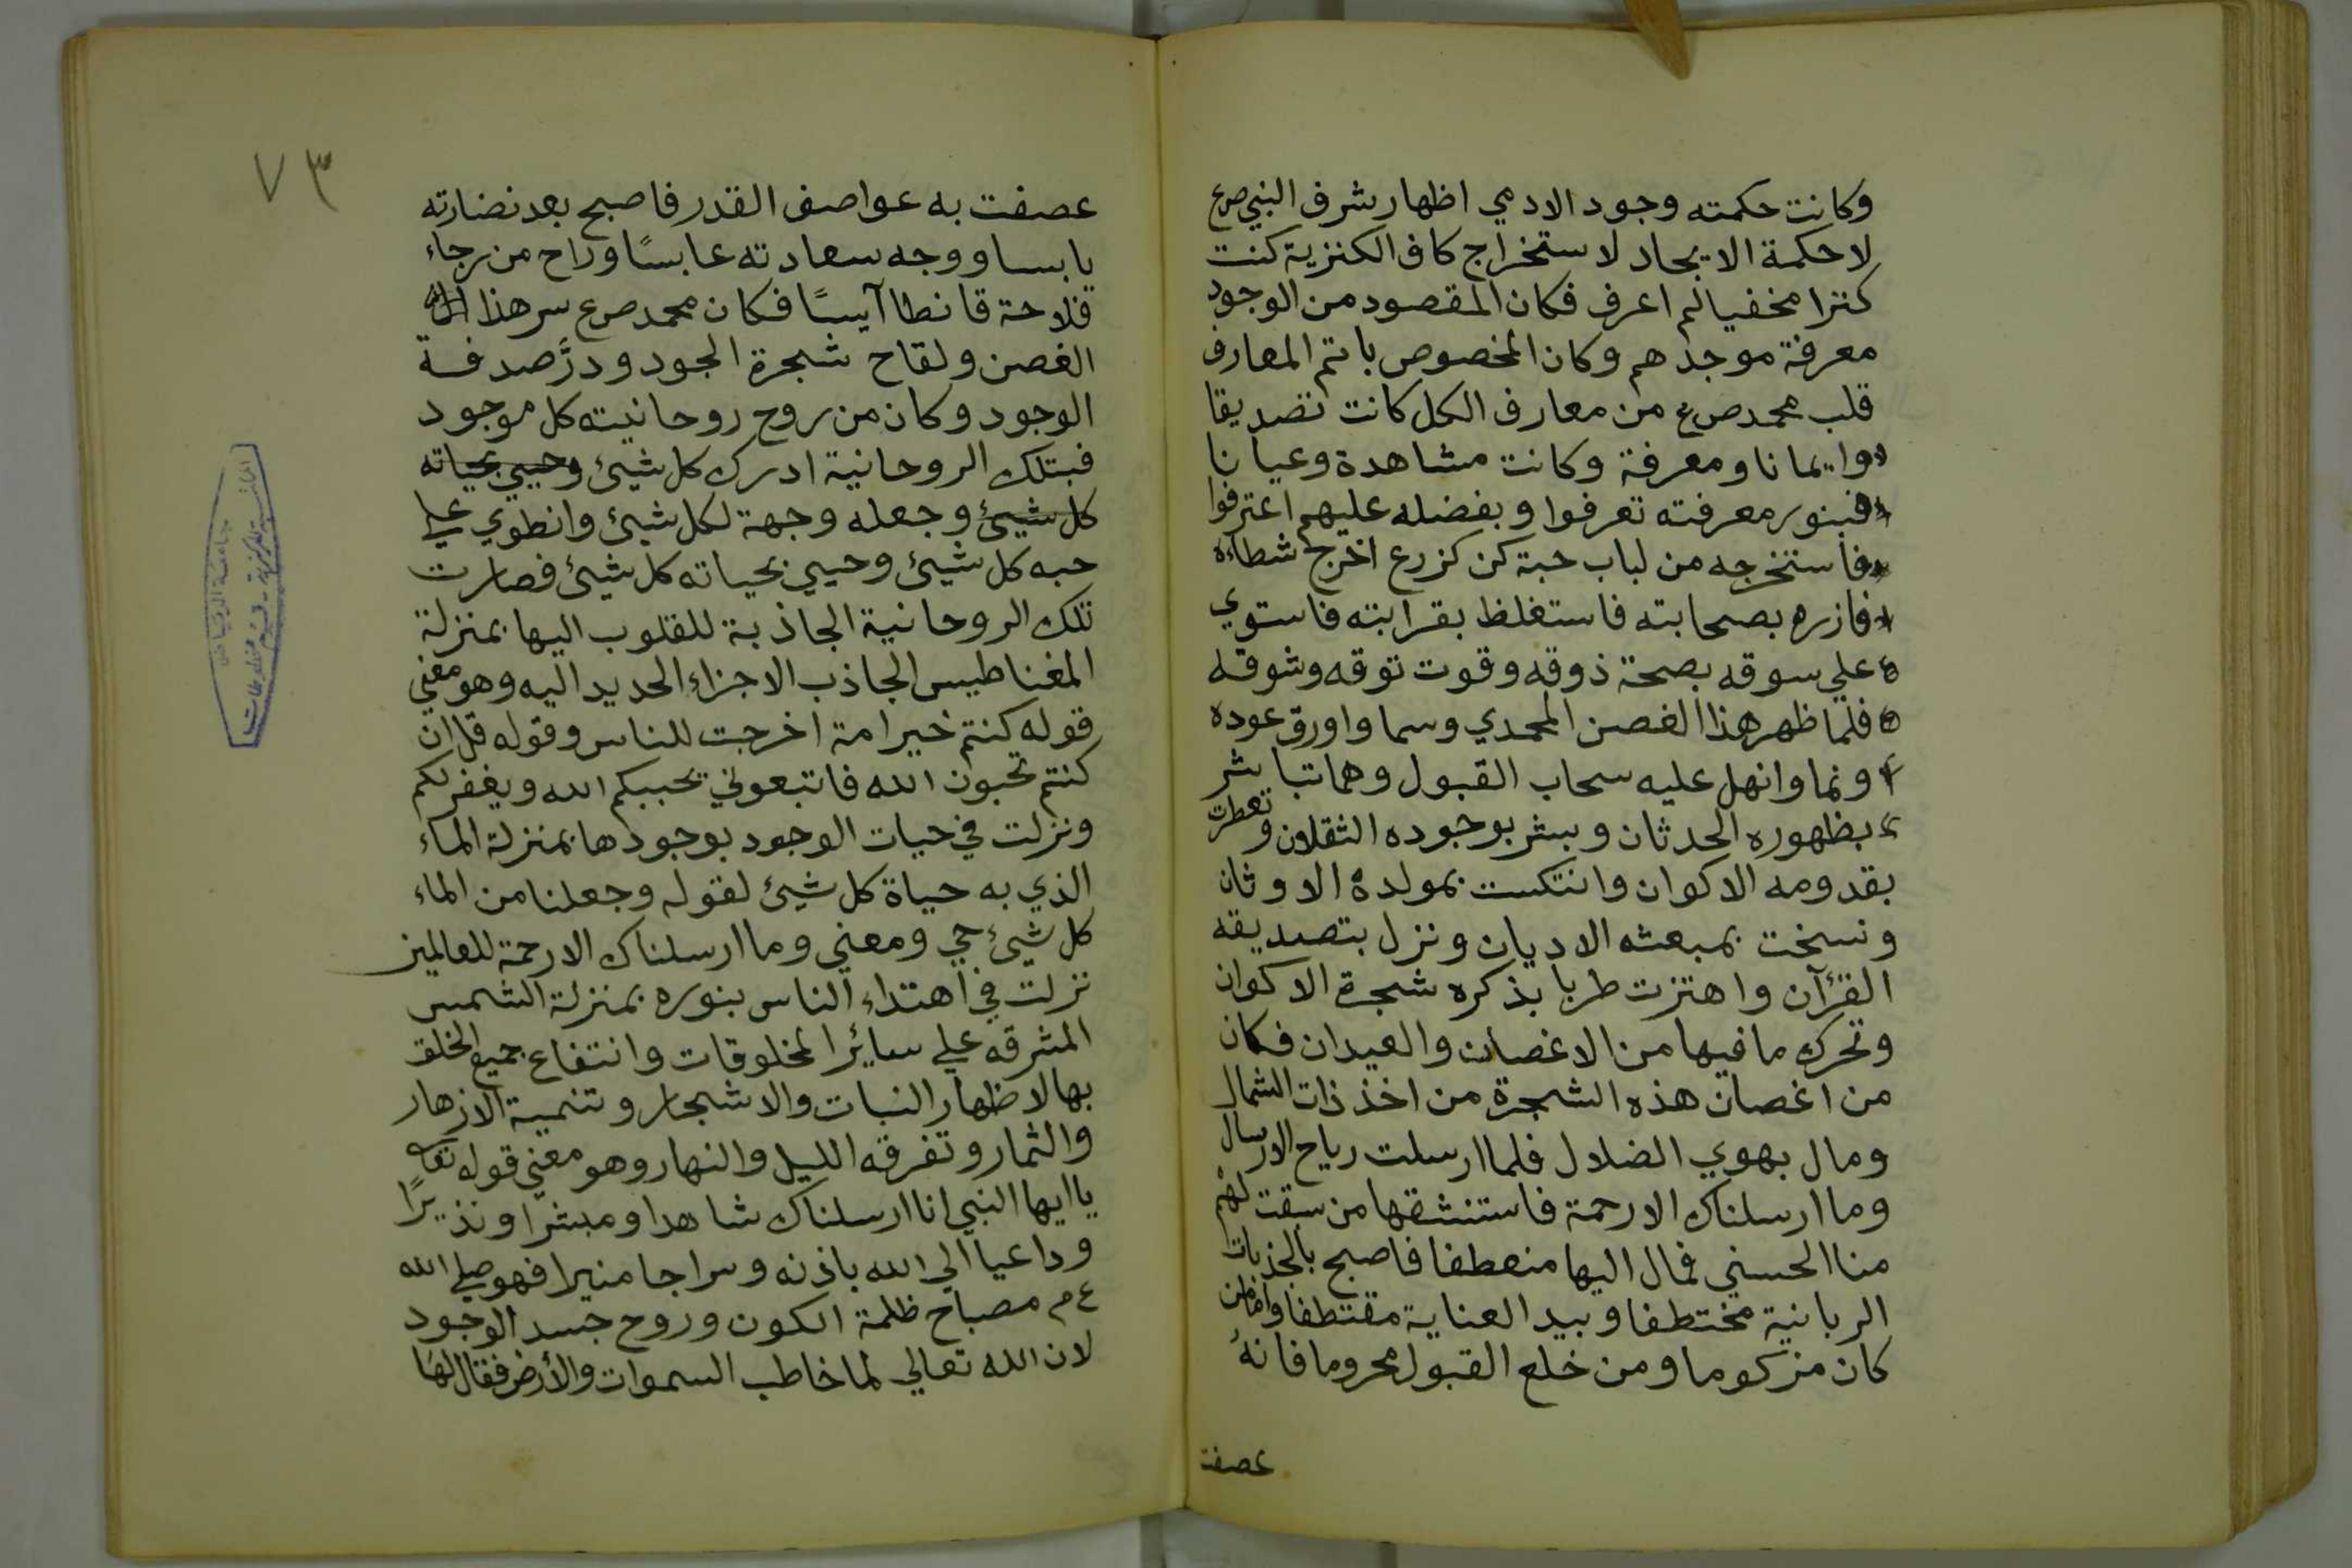 وكانت حكمته وجود الادمي اظهار شرف النبي صع
لاحكمة الايجاد لاستخراج كاف الكنزية كنت
كنزا مخفيا لم اعرف فكان المقصود من الوجود
معرفة موجدهم وكان المخصوص باتم المعارف
قلب محمد صع من معارف الكل كانت تصديقا
وايمانا ومعرفة وكانت مشاهدة وعيانا
فبنور معرفته تعرفوا وبفضله عليهم اعترفوا
فاستخرجه من لباب حبة كن كزرع اخرج شطاءه
فازره بصحابته فاستغلظ بقرابته فاستوي
علي سوقه بصحة ذوقه وقوت توقه وشوقه
فلما ظهر هذا الغصن المحمدي وسما واورق عوده
ونما وانهل عليه سحاب القبول وهما تباشر
بظهوره الحدثان وبشر بوجوده الثقلان وتعطرت
بقدومه الاكوان وانتكست بمولده الاوثان
ونسخت بمبعثه الاديان ونزل بتصديقه
القرآن واهتزت طربا بذكره شجرة الاكوان
وتحرك ما فيها من الاغصان والعيدان فكان
من اغصان هذه الشجرة من اخذ ذات الشمال
ومال بهوي الضلال فلما ارسلت رياح الارسال
وما ارسلناك الا رحمة فاستنشقها من سبقت لهم
منا الحسني فمال اليها منعطفا فاصبح بالجذبات
الربانية مختطفا وبيد العناية مقتطفا واما من
كان مزكوما ومن خلع القبول محروما فانه
عصفت
٧٣
عصفت به عواصف القدر فاصبح بعد نضارته
يابسا ووجه سعادته عابسًا وراح من رجاء
فلاحة قانطا آيسًا فكان محمد صع سر هذا
الغصن ولقاح شجرة الجود ودرَّ صدفة
الوجود وكان من روح روحانيته كل موجود
فبتلك الروحانية ادرك كل شيئ وحيي بحياته
كل شيئ وجعله وجهة لكل شيئ وانطوي علي
حبه كل شيئ وحيي بحياته كل شيئ فصارت
تلك الروحانية الجاذبة للقلوب اليها بمنزلة
المغناطيس الجاذب الاجزاء الحديد اليه وهو معني
قوله كنتم خير امة اخرجت للناس وقوله قل ان
كنتم تحبون الله فاتبعوني يحببكم الله ويغفر لكم
ونزلت في حيات الوجود بوجودها بمنزلة الماء
الذي به حياة كل شيئ لقوله وجعلنا من الماء
كل شيئ حي ومعني وما ارسلناك الا رحمة للعالمين
نزلت في اهتداء الناس بنوره بمنزلة الشمس
المشرقه علي سائر المخلوقات وانتفاع جميع الخلق
بها لاظهار النبات والاشجار وتنمية الازهار
والثمار وتفرقه الليل والنهار وهو معني قوله تعا
يا ايها النبي انا ارسلناك شاهدا ومبشرا ونذيرًا
وداعيا الي الله باذنه وسراجا منيرا فهو صلي الله
ع م مصباح ظلمة الكون وروح جسد الوجود
لان الله تعالي لما خاطب السموات والأرض فقال لها